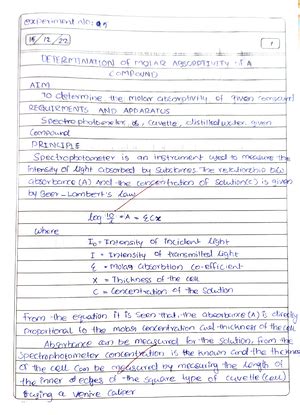 experiment No: 05
15/12/22
1
DETERMINATION OF MOLAR ABSORPTIVITY OF A
COMPOUND
AIM
To determine the molar absorptivity of given compound
REQUIREMENTS AND APPARATUS
Spectrophotometer, cuvette, distilled water, given
compound
PRINCIPLE
Spectrophotometer is an instrument used to measure the
intensity of light absorbed by substances. The relationship b/w
absorbance (A) And the concentration of solution(c) is given
by Beer-Lambert's law
log I0/I = A = ξCx
where
I0 = Intensity of incident light
I = Intensity of transmitted light
ξ = Molar absorbtion co-efficient
x = Thickness of the cell
C = Concentration of the solution
From the equation it is seen that the absorbance (A) is directly
proportional to the molar concentration and thickness of the cell
Absorbance can be measured for the solution, from the
Spectrophotometer concentration is the known and the thickness
of the cell can be measured by measuring the length of
the inner edges of the square type of cuvette (cell)
using a venire caliper